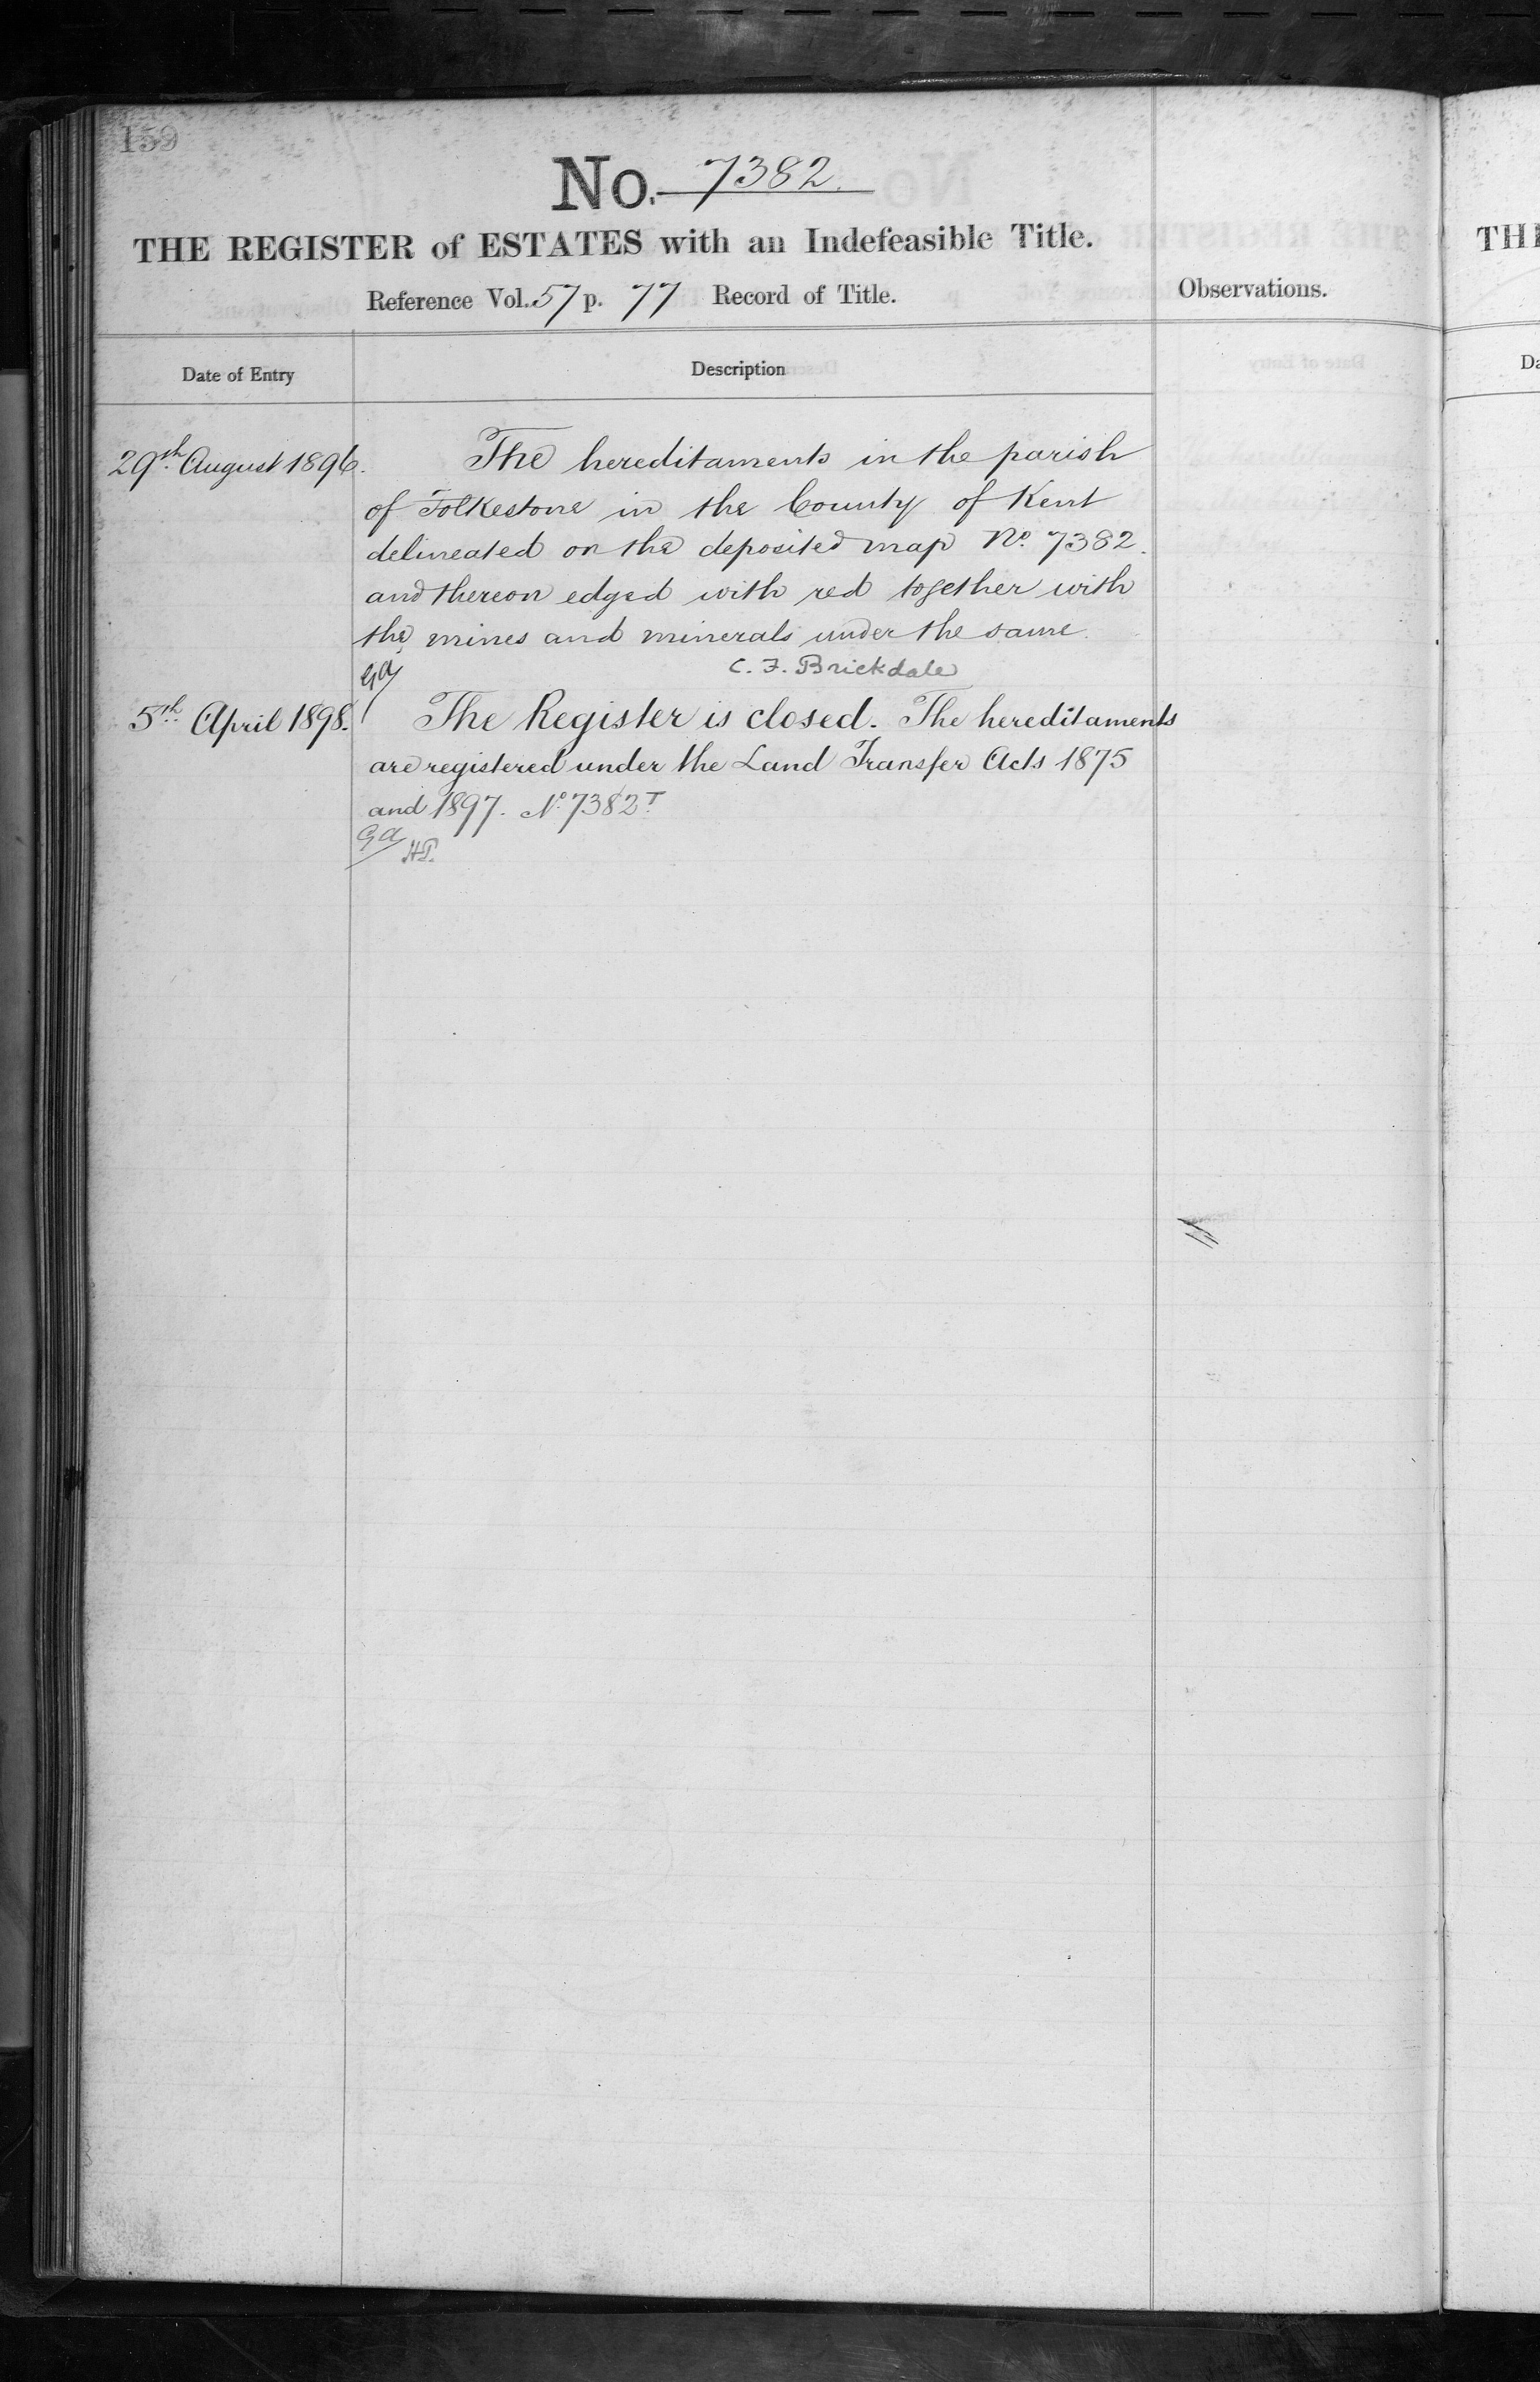 159
No. 7382.
THE REGISTER of ESTATES with an Indefeasible Title.
Reference Vol. 57 p. 77 Record of Title.
Observations.
Date of Entry
Description
29th August 1896. The hereditaments in the parish
of Folkestone in the County of Kent
delineated on the deposited map No. 7382.
and thereon edged with red together with
the mines and minerals under the same.
GA C. F. Brickdale
5th April 1898. The Register is closed. The hereditaments
are registered under the Land Transfer Acts 1875
and 1897. No. 7382T.
GA
THE
Da